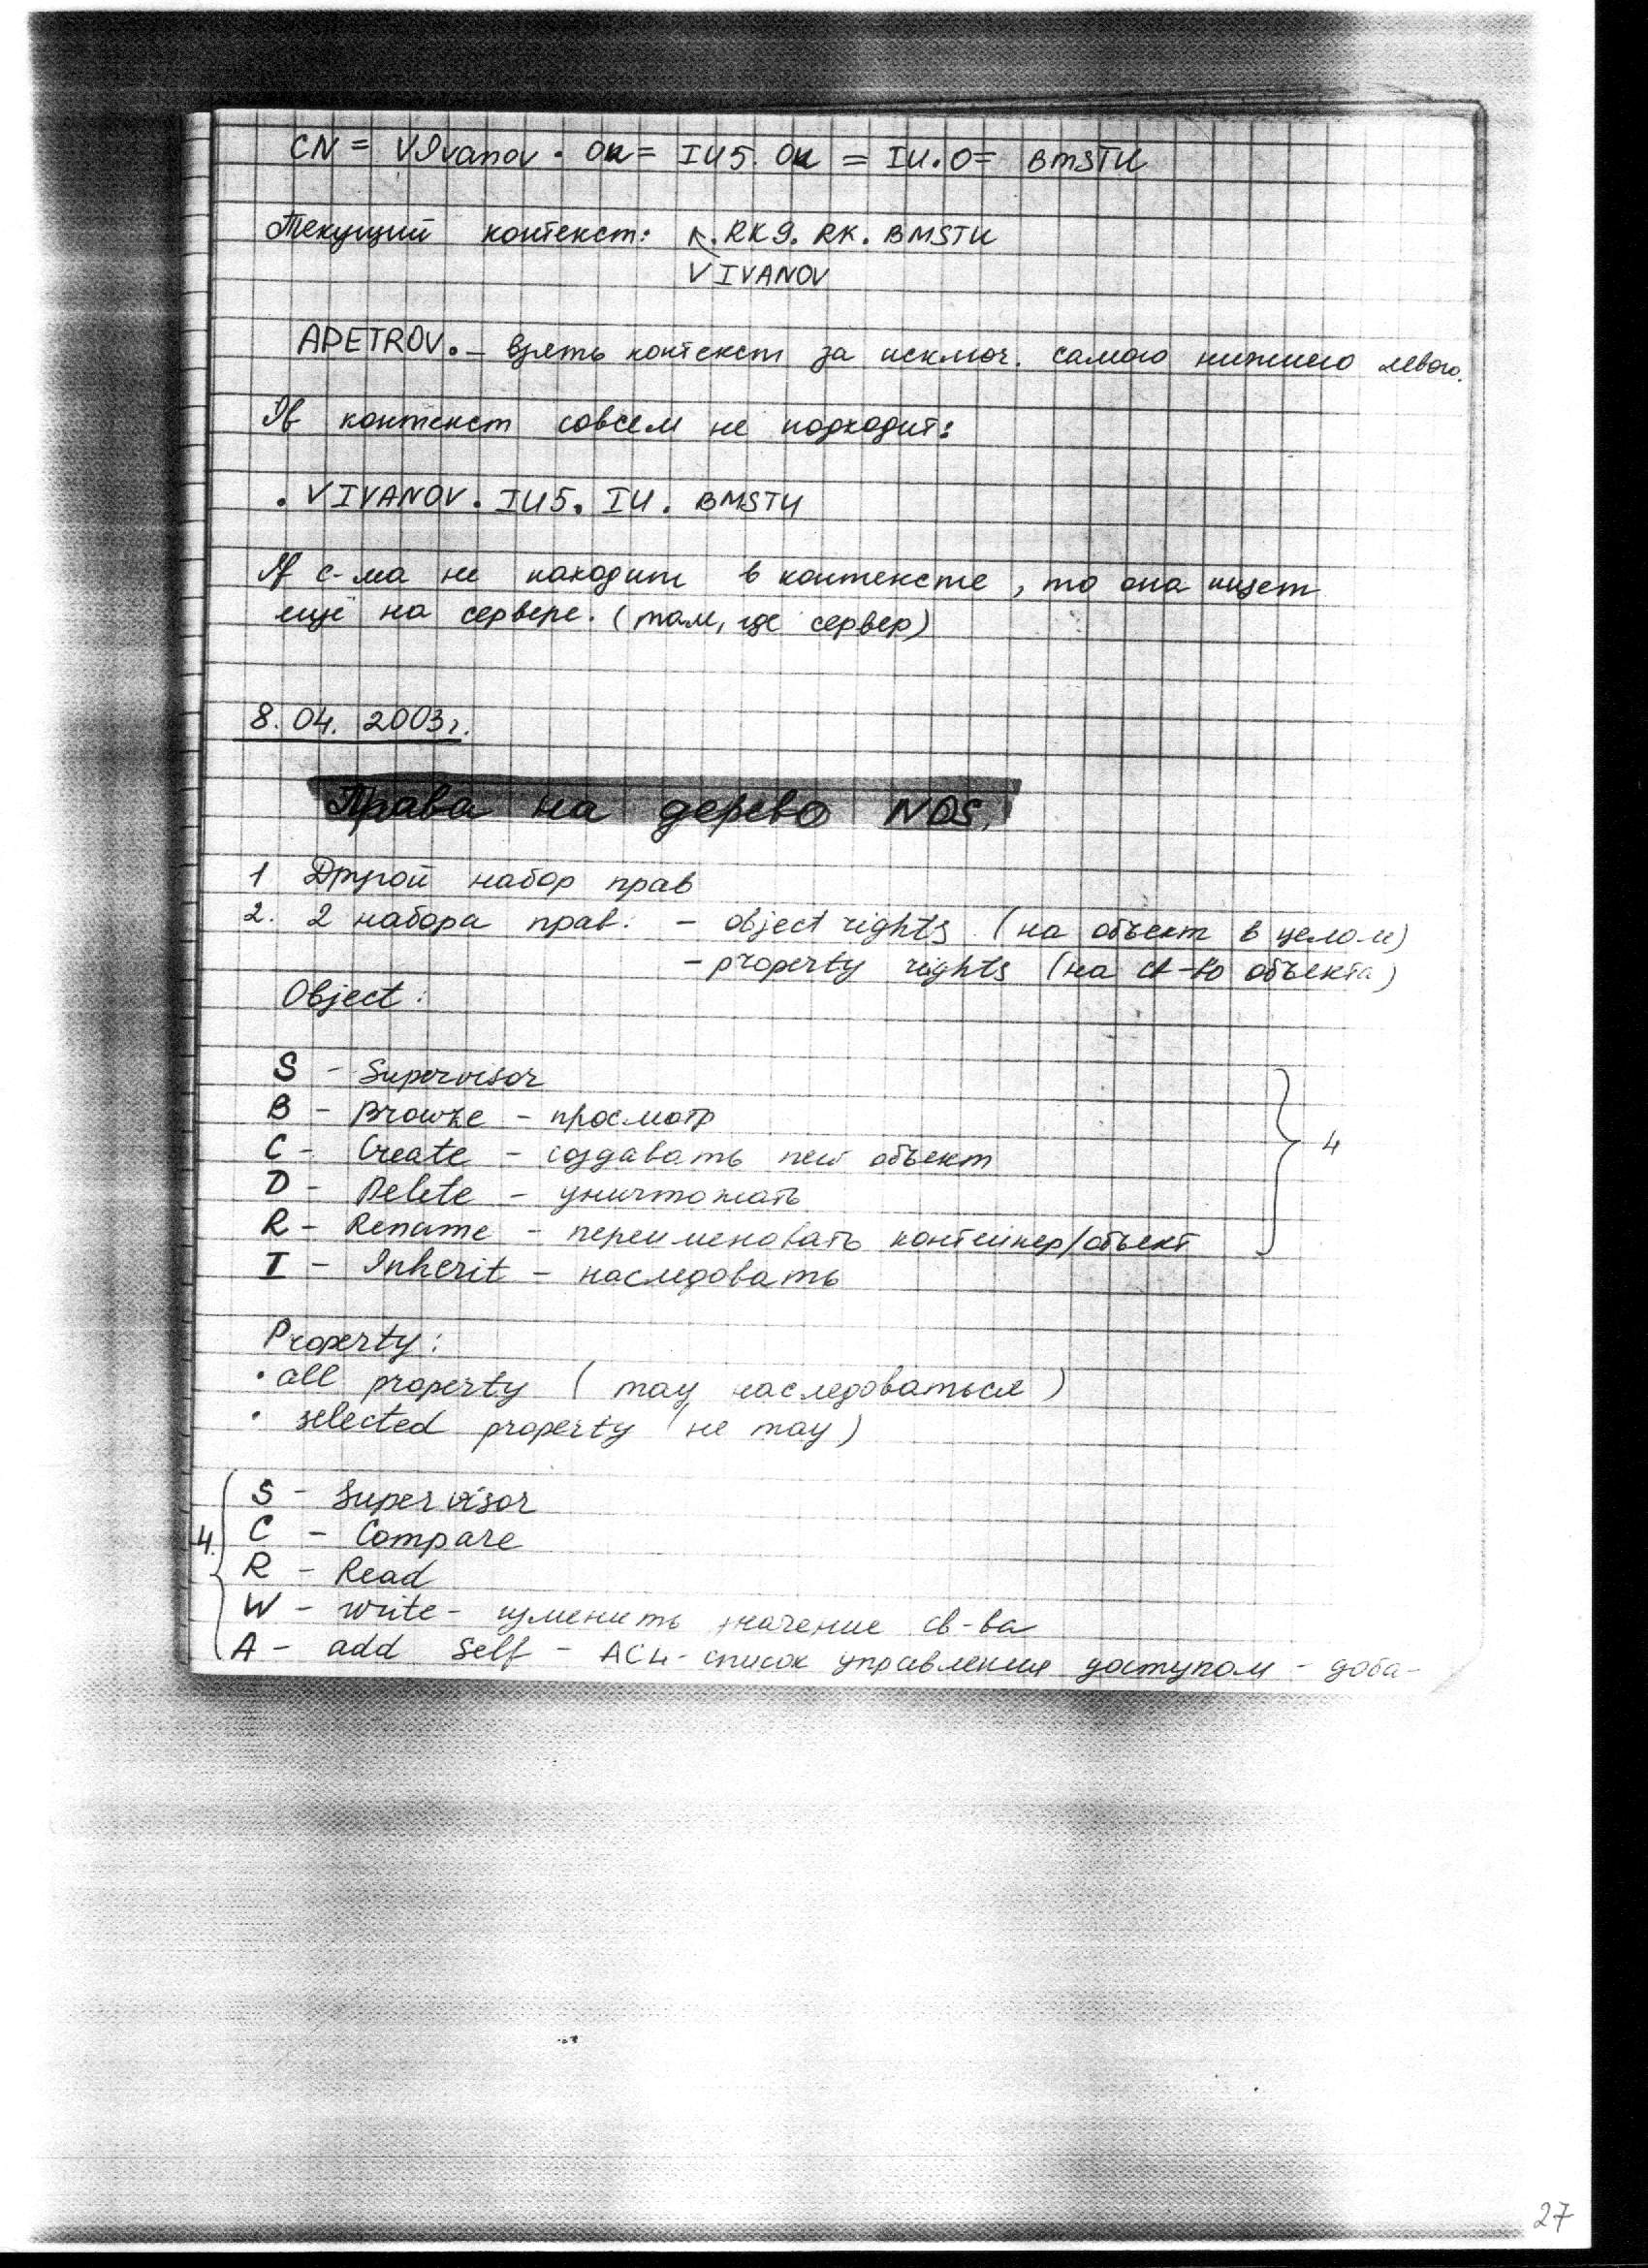 CN = VIvanov . OU = IU5. OU = IU.O = BMSTU
Текущий контекст: .RK9. RK. BMSTU
VIVANOV
APETROV. – взять контекст за исключ. самого нижнего левого.
If контекст совсем не подходит:
. VIVANOV . IU5. IU. BMSTU
If с-ма не находит в контексте, то она ищет
ещё на сервере. (там, где сервер)
8.04. 2003г.
Права на дерево NDS.
1 Другой набор прав
2. 2 набора прав: – object rights (на объект в целом)
– property rights (на св-во объекта)
Object:
S – Supervisor
B – Browze – просмотр
C – Create – создавать new объект
D – Delete – уничтожать
R – Rename – переименовать контейнер/объект
4
I – Inherit – наследовать
Property:
• all property (may наследоваться)
• selected property (не may)
S – Supervisor
4. C – Compare
R – Read
W – write – изменить значение св-ва
A – add Self – ACL – список управления доступом – доба-
27